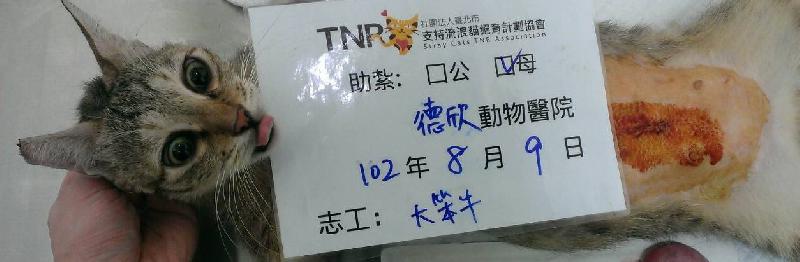 TNR 社團法人臺北市
支持流浪貓絕育計劃協會
Stray Cats TNR Association
助紮：□公 ☑母
德欣動物醫院
102年8月9日
志工：大笨牛